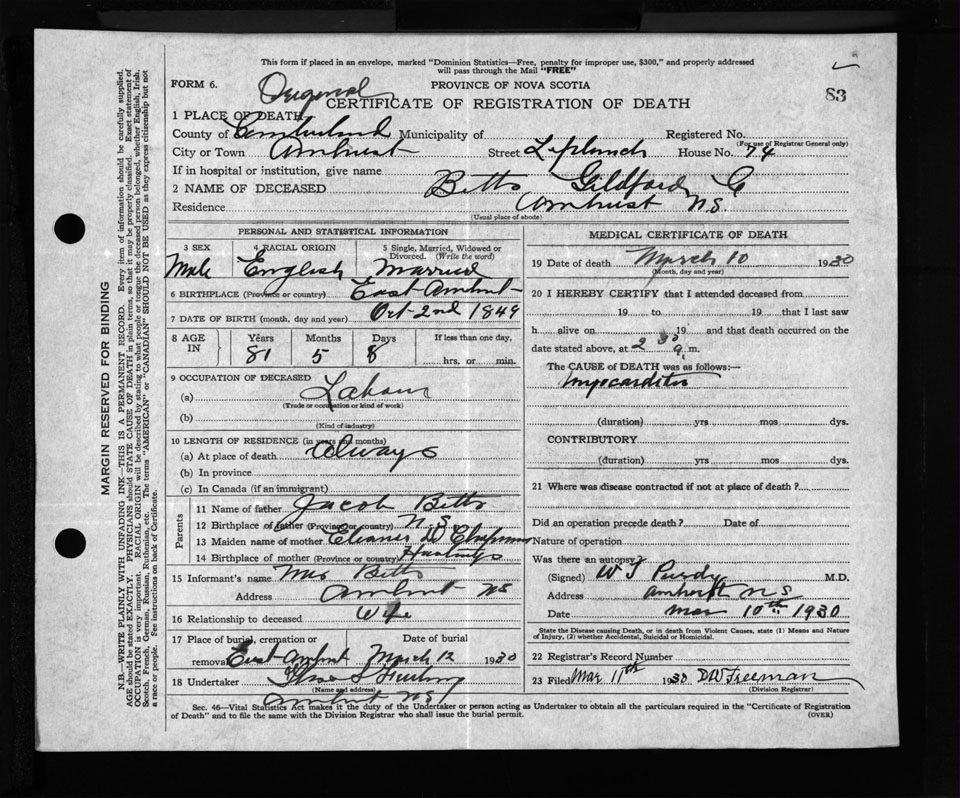 This form if placed in an envelope, marked "Dominion Statistics—Free, penalty for improper use, $300," and properly addressed
will pass through the Mail "FREE"
FORM 6. PROVINCE OF NOVA SCOTIA
Original CERTIFICATE OF REGISTRATION OF DEATH 83
1 PLACE OF DEATH
County of Cumberland Municipality of Registered No.
(For use of Registrar General only)
City or Town Amherst Street Laplanch House No. 74
If in hospital or institution, give name
2 NAME OF DECEASED Betts Gildford C
Residence Amherst N.S.
(Usual place of abode)
PERSONAL AND STATISTICAL INFORMATION
3 SEX 4 RACIAL ORIGIN 5 Single, Married, Widowed or Divorced. (Write the word)
Male English Married
6 BIRTHPLACE (Province or country) East Amherst
7 DATE OF BIRTH (month, day and year) Oct 2nd 1849
8 AGE IN Years Months Days If less than one day,
81 5 8 hrs. or min.
9 OCCUPATION OF DECEASED
(a) Labour
(Trade or occupation or kind of work)
(b)
(Kind of industry)
10 LENGTH OF RESIDENCE (in years and months)
(a) At place of death always
(b) In province
(c) In Canada (if an immigrant)
Parents
11 Name of father Jacob Betts
12 Birthplace of father (Province or country) N S
13 Maiden name of mother Eleanor D Chapman
14 Birthplace of mother (Province or country) Hastings
15 Informant's name Mrs Betts
Address Amherst NS
16 Relationship to deceased Wife
17 Place of burial, cremation or removal Date of burial
East Amherst March 12 1930
18 Undertaker
(Name and address)
Amherst NS
MEDICAL CERTIFICATE OF DEATH
19 Date of death March 10 1930
(Month, day and year)
20 I HEREBY CERTIFY that I attended deceased from
19 to 19 that I last saw
h alive on 19 and that death occurred on
date stated above, at 2 30 a. m.
The CAUSE of DEATH was as follows:—
Myocarditis
(duration) yrs mos dys.
CONTRIBUTORY
(duration) yrs mos dys.
21 Where was disease contracted if not at place of death?
Did an operation precede death? Date of
Nature of operation
Was there an autopsy?
(Signed) W T Purdy M.D.
Address Amherst N S
Date Mar 10th 1930
State the Disease causing Death, or in death from Violent Causes, state (1) Means and Nature
of Injury, (2) whether Accidental, Suicidal or Homicidal.
22 Registrar's Record Number
23 Filed Mar 11th 1930 DW Freeman
(Division Registrar)
Sec. 46—Vital Statistics Act makes it the duty of the Undertaker or person acting as Undertaker to obtain all the particulars required in the "Certificate of Registration
of Death" and to file the same with the Division Registrar who shall issue the burial permit. (OVER)
MARGIN RESERVED FOR BINDING
N.B.—WRITE PLAINLY WITH UNFADING INK—THIS IS A PERMANENT RECORD. Every item of information should be carefully supplied.
AGE should be stated EXACTLY. PHYSICIANS should STATE CAUSE OF DEATH in plain terms, so that it may be properly classified. Exact statement of
OCCUPATION is very important. RACIAL ORIGIN will be described by stating to what people or tongue the deceased person belonged, whether English, Irish,
Scotch, French, German, Russian, Ruthenian, etc. The terms "AMERICAN" or "CANADIAN" SHOULD NOT BE USED as they express citizenship but not
a race or people. See instructions on back of Certificate.